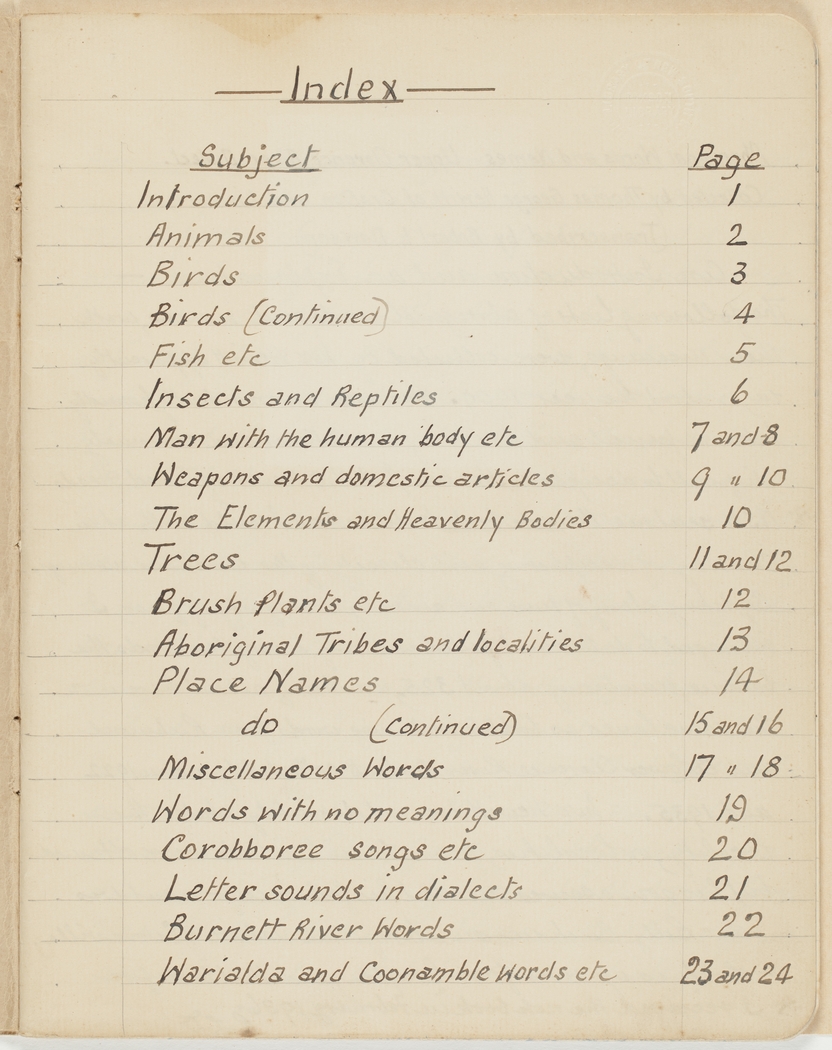 Index
Subject Page
Introduction 1
Animals 2
Birds 3
Birds (Continued) 4
Fish etc 5
Insects and Reptiles 6
Man with the human body etc 7 and 8
Weapons and domestic articles 9 " 10
The Elements and Heavenly Bodies 10
Trees 11 and 12
Brush Plants etc 12
Aboriginal Tribes and localities 13
Place Names 14
do (Continued) 15 and 16
Miscellaneous Words 17 " 18
Words with no meanings 19
Corobboree songs etc 20
Letter sounds in dialects 21
Burnett River Words 22
Warialda and Coonamble words etc 23 and 24